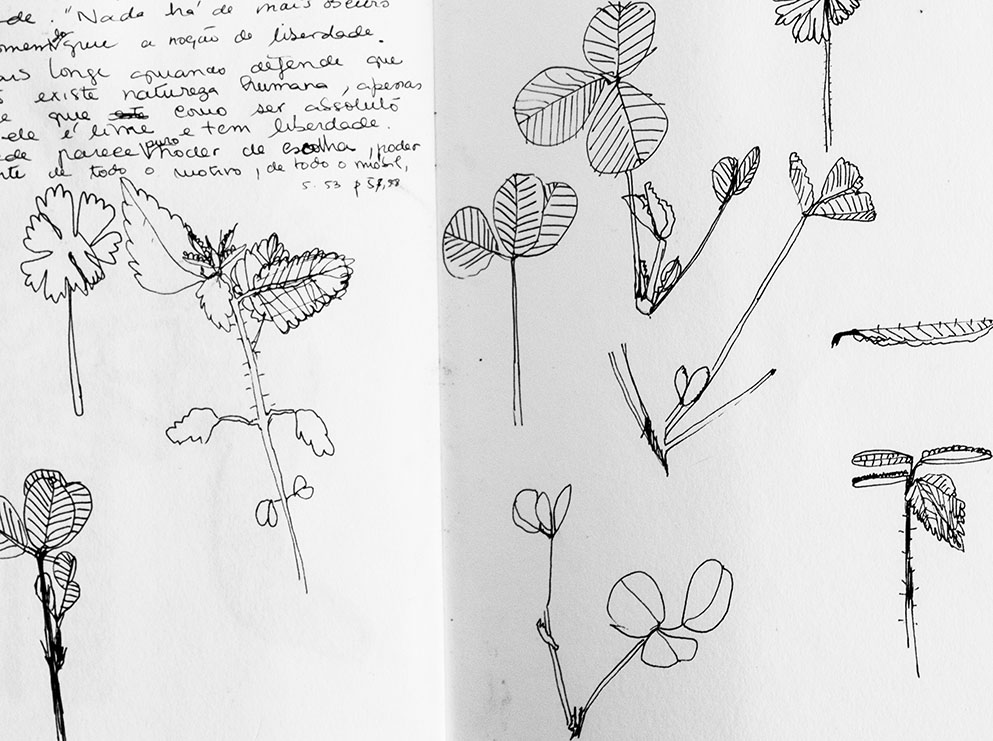 de. "Nada há de mais obscuro
que a noção de liberdade.
ais longe quando defende que
existe natureza humana, apenas
e que como ser absoluto
ele é livre e tem liberdade.
de parece puro poder de escolha, poder
nte de todo o motivo, de todo o móbil,
s. 53 p